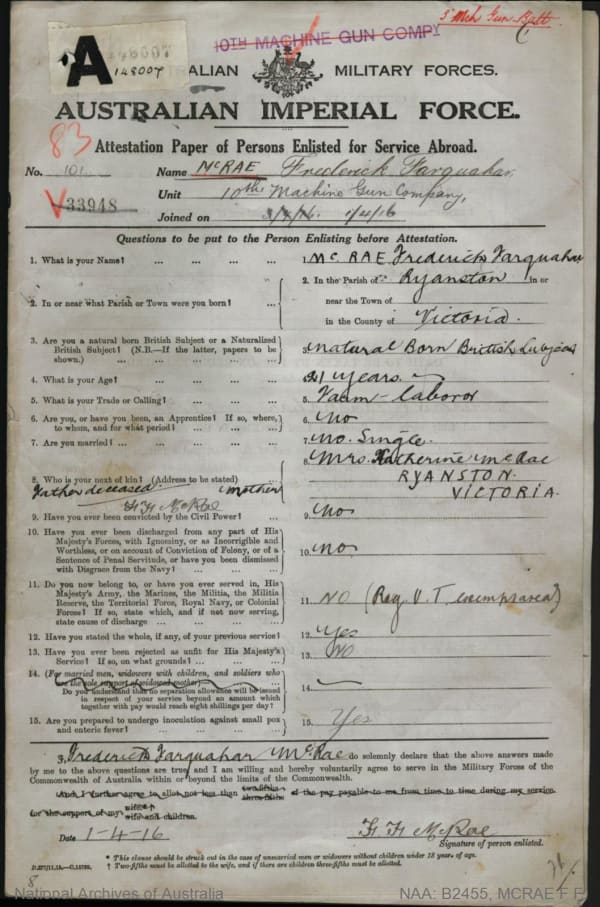 3rd Mch Gun Batt
10TH MACHINE GUN COMPY
A 148007
AUSTRALIAN MILITARY FORCES.
AUSTRALIAN IMPERIAL FORCE.
83
Attestation Paper of Persons Enlisted for Service Abroad.
No. 101 Name McRAE Frederick Farquahar
Unit 10th Machine Gun Company,
33948
Joined on 3/4/16. 1/4/16
Questions to be put to the Person Enlisting before Attestation.
1. What is your Name? ... ... ... ... 1. Mc RAE Frederick Farquahar
2. In or near what Parish or Town were you born? ... 2. In the Parish of Ryanston in or
near the Town of
in the County of Victoria.
3. Are you a natural born British Subject or a Naturalized
British Subject? (N.B.—If the latter, papers to be
shown.) ... ... ... ... 3. Natural Born British Subject
4. What is your Age? ... ... ... ... 4. 21 years.
5. What is your Trade or Calling? ... ... ... 5. Farm-laboror
6. Are you, or have you been, an Apprentice? If so, where,
to whom, and for what period? ... ... ... 6. No
7. Are you married? ... ... ... ... 7. No. Single.
8. Who is your next of kin? (Address to be stated) ... 8. Mrs. Katherine McRae
Father deceased. (mother) RYANSTON.
VICTORIA.
F F McRae
9. Have you ever been convicted by the Civil Power? ... 9. No
10. Have you ever been discharged from any part of His
Majesty's Forces, with Ignominy, or as Incorrigible and
Worthless, or on account of Conviction of Felony, or of a
Sentence of Penal Servitude, or have you been dismissed
with Disgrace from the Navy? ... ... ... 10. No
11. Do you now belong to, or have you ever served in, His
Majesty's Army, the Marines, the Militia, the Militia
Reserve, the Territorial Force, Royal Navy, or Colonial
Forces? If so, state which, and if not now serving,
state cause of discharge ... ... ... 11. NO (Reg. U.T. exempt area)
12. Have you stated the whole, if any, of your previous service? 12. Yes
13. Have you ever been rejected as unfit for His Majesty's
Service? If so, on what grounds? ... ... 13. NO
14. (For married men, widowers with children, and soldiers who
are the sole support of widowed mother) ...
Do you understand that no separation allowance will be issued
in respect of your service beyond an amount which
together with pay would reach eight shillings per day? 14. —
15. Are you prepared to undergo inoculation against small pox
and enteric fever? ... ... ... ... 15. Yes
I, Frederick Farquahar McRae do solemnly declare that the above answers made
by me to the above questions are true, and I am willing and hereby voluntarily agree to serve in the Military Forces of the
Commonwealth of Australia within or beyond the limits of the Commonwealth.
And I further agree to allot not less than two-fifths three-fifths of the pay payable to me from time to time during my service
for the support of my wife wife and children.
Date 1-4-16 F F McRae
Signature of person enlisted.
* This clause should be struck out in the case of unmarried men or widowers without children under 18 years of age.
† Two-fifths must be allotted to the wife, and if there are children three-fifths must be allotted.
8
National Archives of Australia NAA: B2455, MCRAE F F